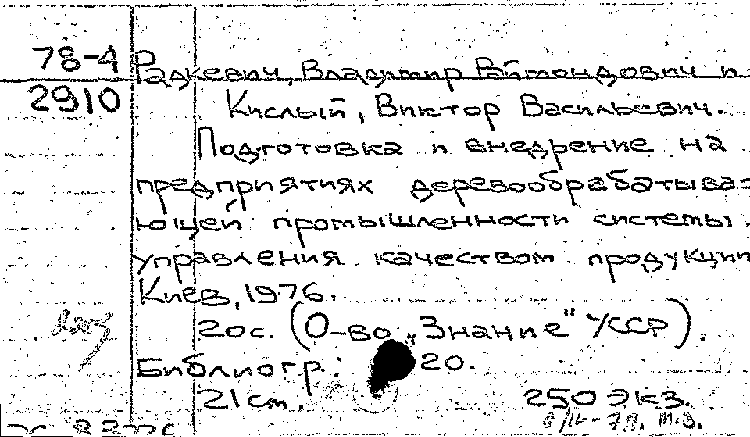 78-4 Радкевич, Владимир Раймондович и
2910 Кислый, Виктор Васильевич.
Подготовка и внедрение на
предприятиях деревообрабатыва=
ющей промышленности системы
управления качеством продукции
Киев, 1976.
20с. (О-во „Знание" УССР).
Библиогр: 20.
21 cm. 250 экз.